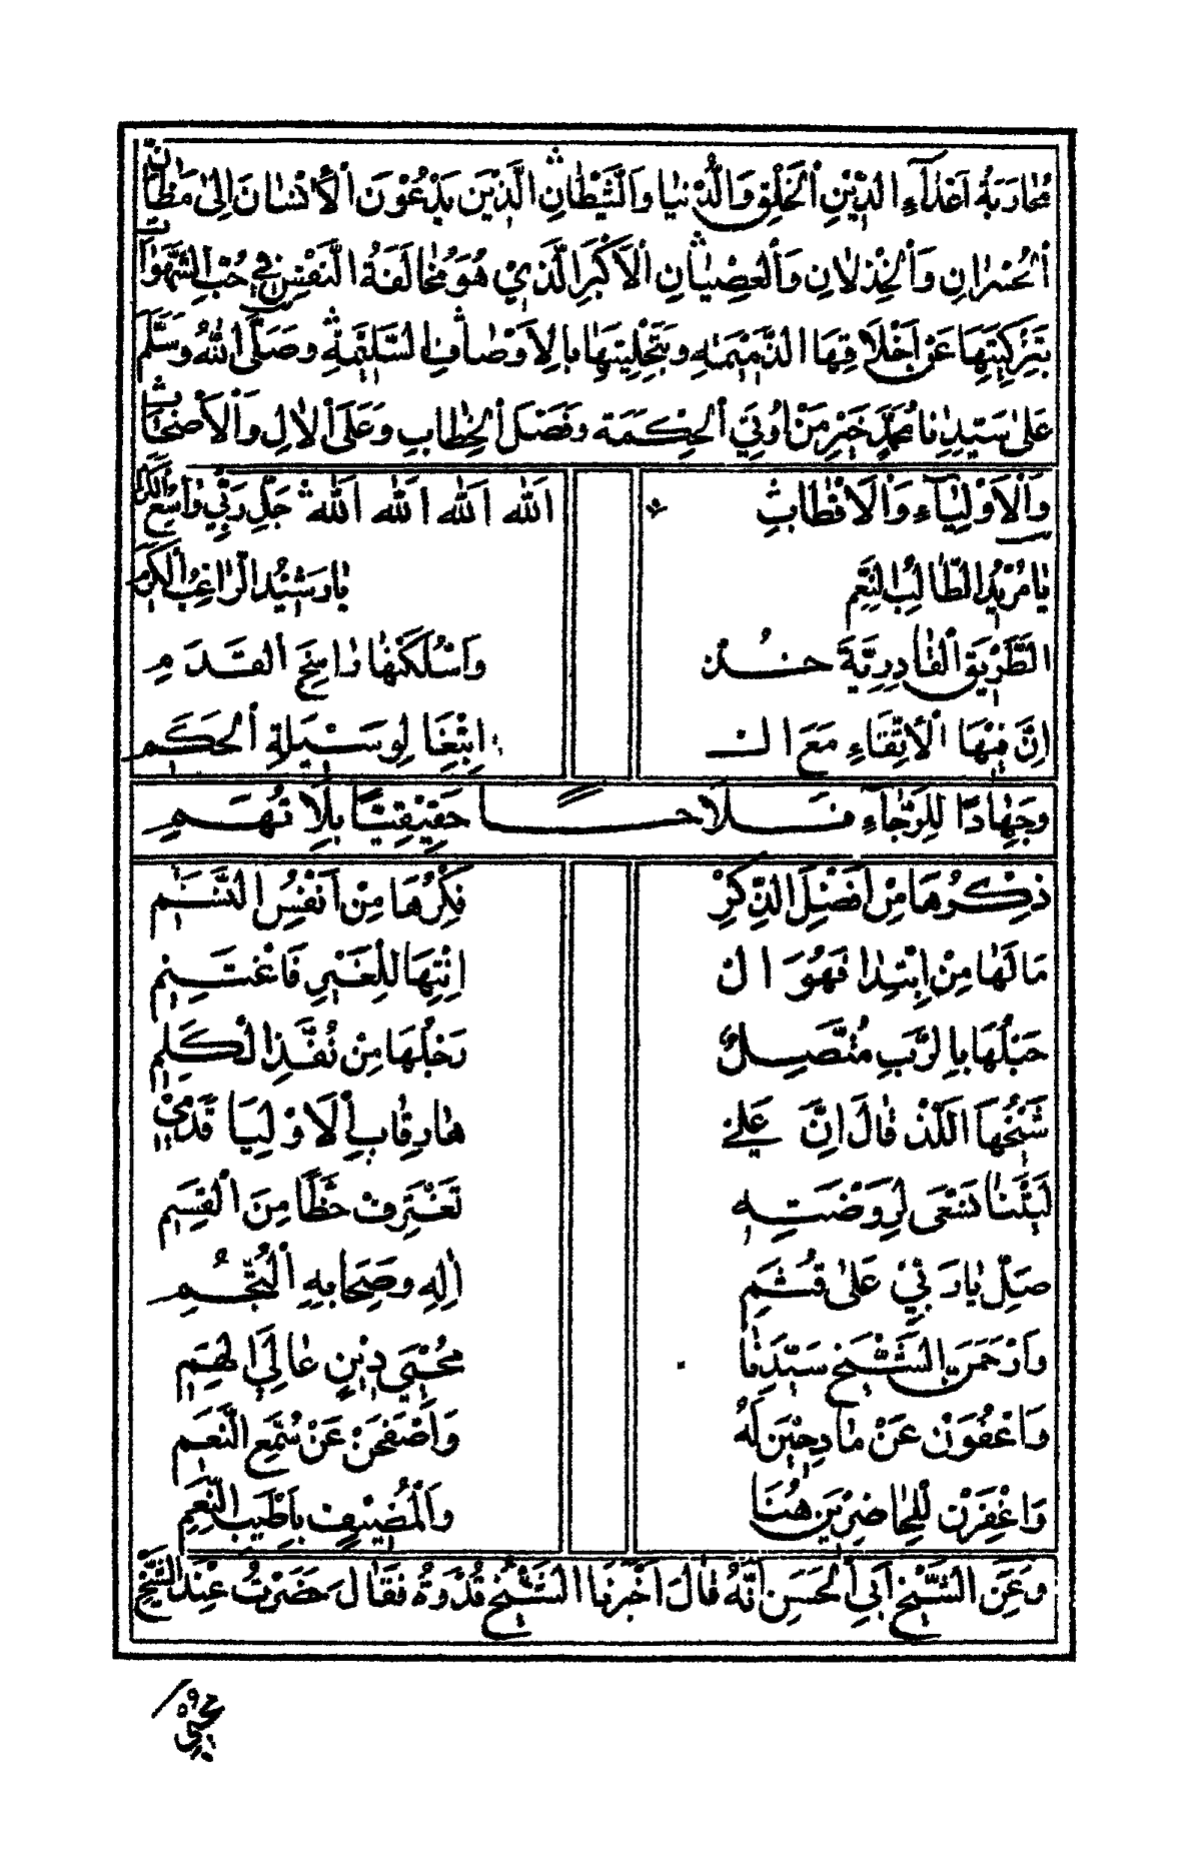 مُحَارَبَةُ اَعْدَآءِ الدِّيْنِ اَلْخَلْقِ وَالدُّنْيَا وَالشَّيْطَانِ الَّذِيْنَ يَدْعُوْنَ اَلْاِنْسَانَ اِلٰى مَظَانِّ
اَلْخُسْرَانِ وَاَلْخِذْلَانِ وَاَلْعِصْيَانِ اَلْاَكْبَرِ الَّذِيْ هُوَ مُخَالَفَةُ النَّفْسِ فِي حُبِّ الشَّهَوَاتِ
بِتَزْكِيَتِهَا عَنْ اَخْلَاقِهَا الذَّمِيْمَةِ وَبِتَحْلِيَتِهَا بِالْاَوْصَافِ السَّلِيْمَةِ وَصَلَّى اللهُ وَسَلَّمَ
عَلٰى سَيِّدِنَا مُحَمَّدٍ خَيْرِ مَنْ اُوْتِيَ اَلْحِكْمَةَ وَفَصْلَ اَلْخِطَابِ وَعَلَى اَلْاٰلِ وَاَلْاَصْحَابِ
وَاَلْاَوْلِيَآءِ وَالْاَقْطَابِ اَللّٰه اَللّٰه اَللّٰه اَللّٰه جَلَّ رَبِّي وَاسِعُ الْكَرَمِ
يَا مُرِيْدُ الطَّالِبُ النِّعَمِ يَا رَشِيْدُ الرَّاغِبُ الْكَرَمِ
الطَّرِيْقَ اَلْقَادِرِيَّةَ حُزْ وَاسْلُكَنْهَا رَاسِخَ اَلْقَدَمِ
اِنَّ فِيْهَا اَلْاِتِّقَاءَ مَعَ ال اِبْتِغَا لِوَسِيْلَةِ اَلْحَكَمِ
وَجِهَادًا لِلرَّجَآءِ فَلَاحًا حَقِيْقِيًّا بِلَا تُهَمِ
ذِكْرُهَا مِنْ اَفْضَلِ الذِّكْرِ فِكْرُهَا مِنْ اَنْفَسِ النَّسَمِ
مَا لَهَا مِنْ اِبْتِدَا فَهُوَ ال اِنْتِهَا لِلْغَيْرِ فَاغْتَنِمِ
حَبْلُهَا بِالرَّبِّ مُتَّصِلٌ
شَيْخُهَا اللَّذْ قَالَ اِنَّ عَلٰى هَا رِقَابِ اَلْاَوْلِيَا قَدَمِيْ
لَيْتَنَا نَسْعٰى لِرَوْضَتِهِ نَغْتَرِفْ حَظًّا مِنَ الْقِسَمِ
صَلِّ يَا رَبِّيْ عَلٰى قُثَمِ اٰلِهِ وَصِحَابِهِ اَلنُّجُمِ
وَارْحَمَنَّ الشَّيْخَ سَيِّدَنَا مُحْيِيَ دِيْنٍ عَالِيَ الْهِمَمِ
وَاعْفُوَنْ عَنْ مَادِحِيْنَ لَهُ وَاصْفَحَنْ عَنْ سُمَّعِ النَّغَمِ
وَاغْفِرَنْ لِلْحَاضِرِيْنَ هُنَا وَالْمُضِيْفِ بِاَطْيَبِ النِّعَمِ
وَعَنِ الشَّيْخِ اَبِي اَلْحَسَنِ اَنَّهُ قَالَ اَخْبَرَنَا الشَّيْخُ قُدْوَةُ فَقَالَ حَضَرْتُ عِنْدَ الشَّيْخِ